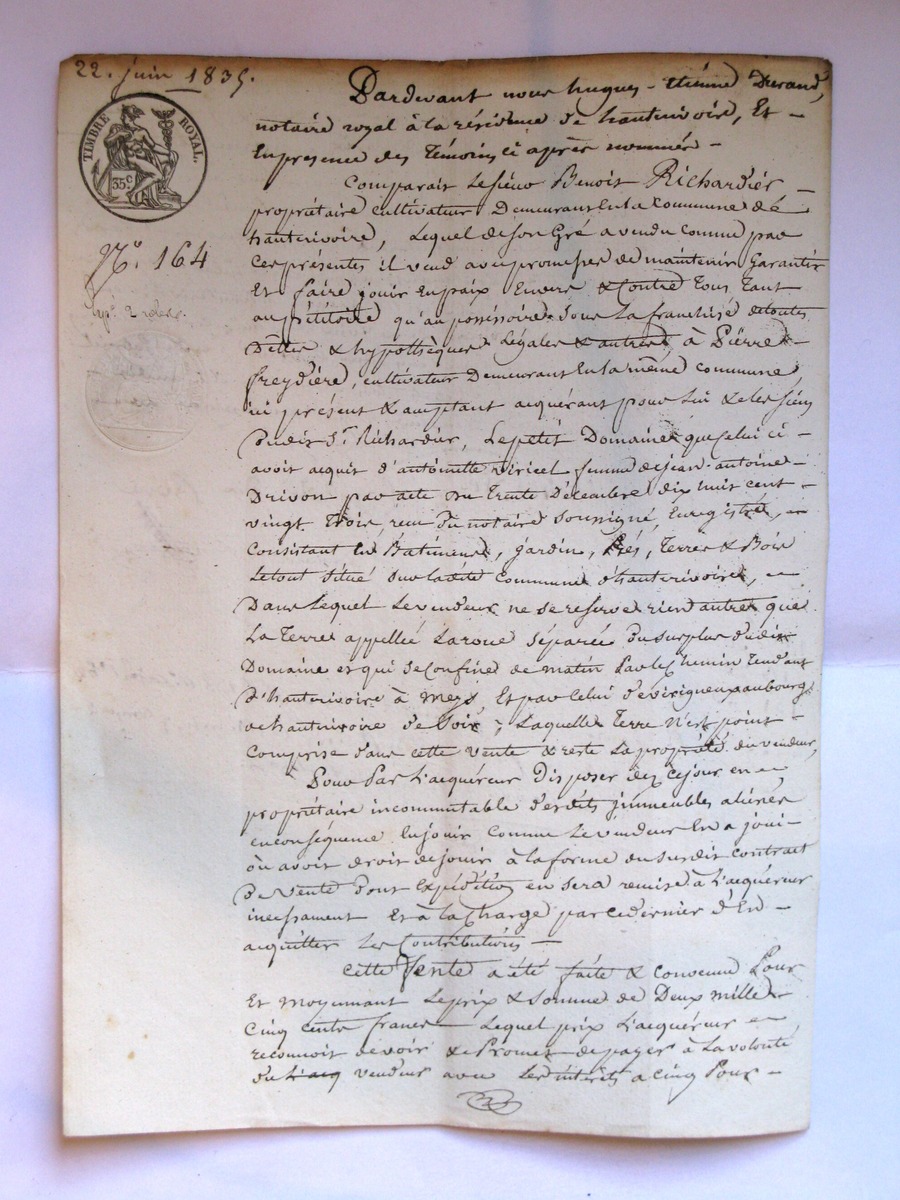 22. juin 1835.
TIMBRE ROYAL.
35c
N.º 164
Exp.é 2 roles.
Pardevant nous hugues-étiénne Durand,
notaire royal à la résidence de hauterivoire, Et
En presence des témoins ci après nommés
Comparait Le sieur Benoit Richardier
propriétaire cultivateur Demeurant En la commune de
hauterivoire, Lequel de son Gré a vendu comme par
Ces présentes il vend avec promesses de maintenir Garantir
Et faire jouir En paix Envers & Contre tous tant
au pétitoire qu'au possessoire sous La franchise de toutes
Dettes & hypothèques Légales & autres, à Piérre
freydiére, cultivateur Demeurant En la même commune
ici présent & acceptant acquérant pour Lui & les siens
Dudit S.r Richardier, Le petit Domaine que Celui ci
avoit acquis d'antoinette véricel femme de jean-antoine
Drivon par acte du trente Décembre dix huit cent
vingt trois, reçu du notaire soussigné, Enregistré,
Consistant En Batimens, jardin, Prés, Terres & Bois
Le tout situé sur la dite Commune d'hauterivoire,
Dans Lequel Le vendeur ne se reserve rien d'autre que
La Terre appellée Laroue séparée du surplus dudit
Domaine et qui se Confine de matin par le Chemin tendant
D'hauterivoire à meys Et par Celui de virigneux au bourg
de hauterivoire de soir ; Laquelle Terre n'est point
Comprise dans cette vente & reste La propriété du vendeur,
Pour Par L'acquéreur Disposer dez ce jour en
propriétaire incommutable desdits jmmeubles aliénés
en conséquence En jouir Comme Le vendeur En a joui
ou avoit droit de jouir à la forme du susdit contrat
De vente dont Expédition en sera remise à L'acquéreur
incessament Et à la Charge par ce dernier d'En
acquitter les Contributions
Cette Vente a été faite & convenue Pour
Et moyennant Le prix & somme de Deux mille
Cinq cents francs Lequel prix L'acquéreur
reconnoit devoir & Promet de payer à La volonté
du L'acq vendeur avec Les intérêts a cinq Pour